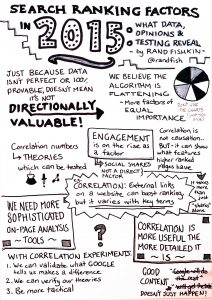 SEARCH RANKING FACTORS
IN 2015:
WHAT DATA,
OPINIONS &
TESTING REVEAL
by RAND FISHKIN~
@randfish
JUST BECAUSE DATA
ISN'T PERFECT OR 100%
PROVABLE, DOESN'T MEAN
IT'S NOT
DIRECTIONALLY
VALUABLE!
WE BELIEVE THE
ALGORITHM IS
FLATTENING~
~ More factors of
EQUAL
IMPORTANCE
Correlation numbers
→ THEORIES
which can be tested
ENGAGEMENT
is on the rise as
a factor
→ SOCIAL SHARES
NOT A DIRECT
FACTOR
Correlation is
not causation..
BUT - it can show
what features
higher ranked
pages have
CORRELATION: External links
on a website can boost ranking,
but it varies with key terms
WE NEED MORE
SOPHISTICATED
ON-PAGE ANALYSIS
~ TOOLS ~
CORRELATION IS
MORE USEFUL THE
MORE DETAILED IT
~ IS ~
WITH CORRELATION EXPERIMENTS:
1. We can validate what GOOGLE
tells us makes a difference
2. We can verify our theories
3. Be more tactical
GOOD
CONTENT
DOESN'T JUST HAPPEN!